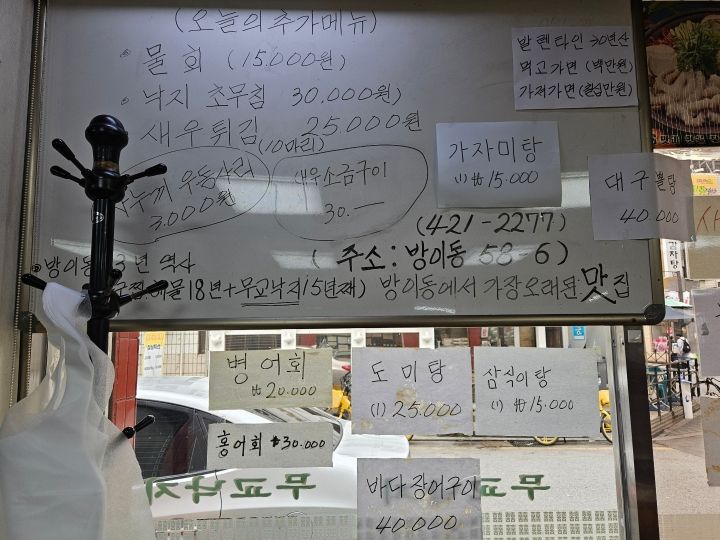 (오늘의 추가메뉴)
• 물회 (15.000원)
• 낙지 초무침 30.000원)
새우튀김 25.000원
(10마리)
우동사리
3.000원
새우소금구이
30.—
(421-2277)
(주소: 방이동 58-6)
• 방이동 3년 역사
해물18년+무교낙지15년째) 방이동에서 가장오래된 맛집
발렌타인 30년산
먹고가면 (백만원)
가져가면
가자미탕
(1) ₩15.000
대구뽈탕
40.000
병어회
₩20.000
도미탕
(1) 25.000
삼식이탕
(1) ₩15.000
홍어회 ₩30.000
바다장어구이
40.000
무교낙지
무교